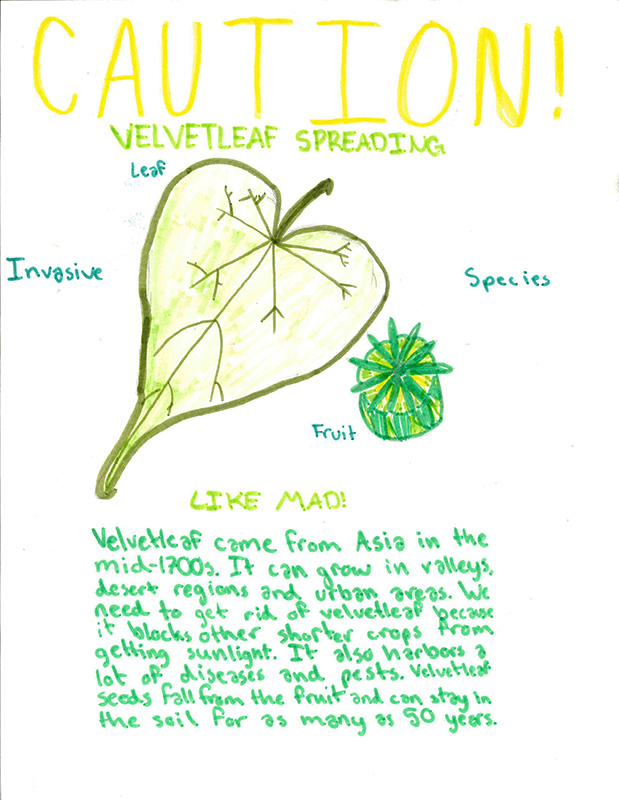 CAUTION!
VELVETLEAF SPREADING
Leaf
Invasive
Species
Fruit
LIKE MAD!
Velvetleaf came from Asia in the
mid-1700s. It can grow in valleys,
desert regions and urban areas. We
need to get rid of velvetleaf because
it blocks other shorter crops from
getting sunlight. It also harbors a
lot of diseases and pests. Velvetleaf
seeds fall from the fruit and can stay in
the soil for as many as 50 years.